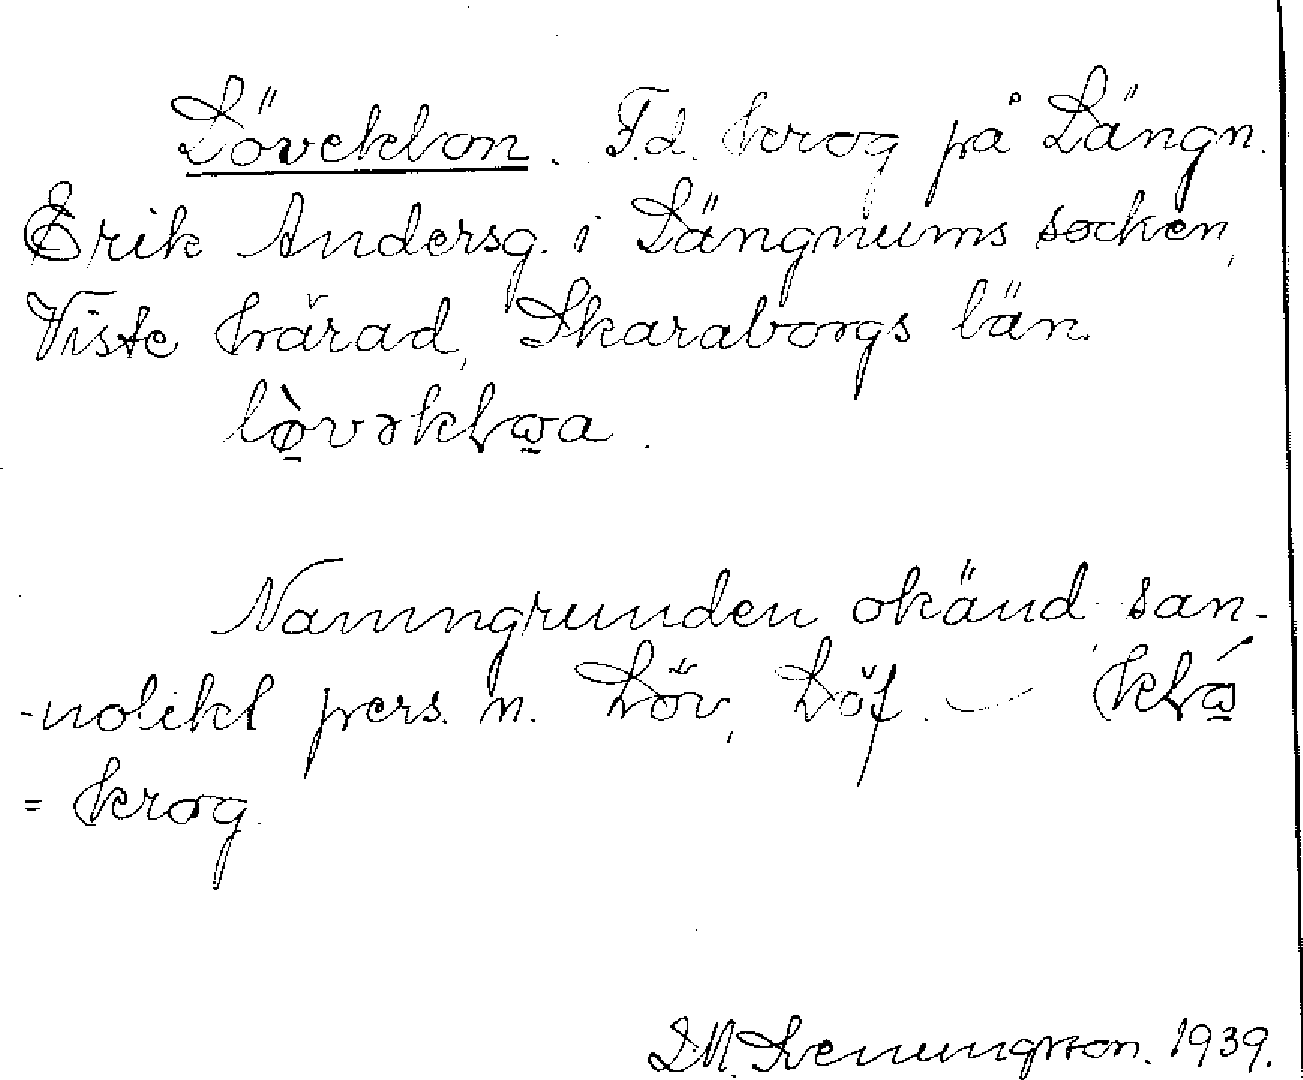 Löveklon. F.d. krog på Längn.
Erik Andersg. i Längnums socken,
Viste härad, Skaraborgs län.
Namngrunden okänd san-
-nolikt pers. n. Löv, Löf. –
= krog.
1939.